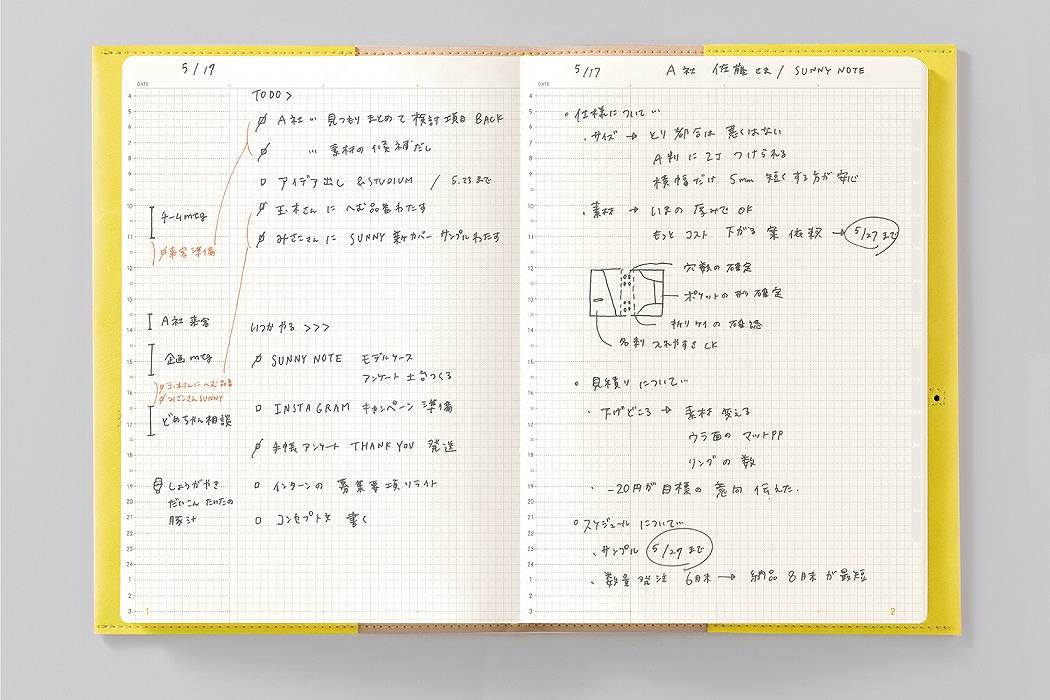 5/17
DATE
TODO>
A社 … 見つもりまとめて検討項目 BACK
… 素材の候補だし
アイデア出し &STUDIUM / 5.23まで
玉木さんに へむ品番わたす
みさこさんに SUNNY 新カバー サンプルわたす
チームmtg
来客準備
A社来客
企画mtg
玉木さんにへむ品番
みさこさんSUNNY
どめちゃん相談
しょうがやき
だいこん たいたの
豚汁
いつかやる >>>
SUNNY NOTE モデルケース
アンケート 土台つくる
INSTAGRAM キャンペーン 準備
手帳アンケート THANK YOU 発送
インターンの 募集要項リライト
コンセプト文 書く
4
5
6
7
8
9
10
11
12
13
14
15
16
17
18
19
20
21
22
23
24
1
2
3
1
5/17 A社 佐藤さま / SUNNY NOTE
DATE
。仕様について…
・サイズ → とり都合は悪くはない
A判に2丁つけられる
横幅だけ 5mm 短くする方が安心
・素材 → いまの厚みでOK
もっと コスト 下がる 案 依頼 → 5/27まで
穴数の確定
ポケットの形 確定
折りケイの確認
名刺 入れやすさ CK
。見積りについて…
・下げどころ → 素材変える
ウラ面の マットPP
リングの数
・-20円が目標の意向 伝えた.
。スケジュールについて…
・サンプル 5/27まで
・数量発注 6月末 → 納品 8月末が最短
4
5
6
7
8
9
10
11
12
13
14
15
16
17
18
19
20
21
22
23
24
1
2
3
2